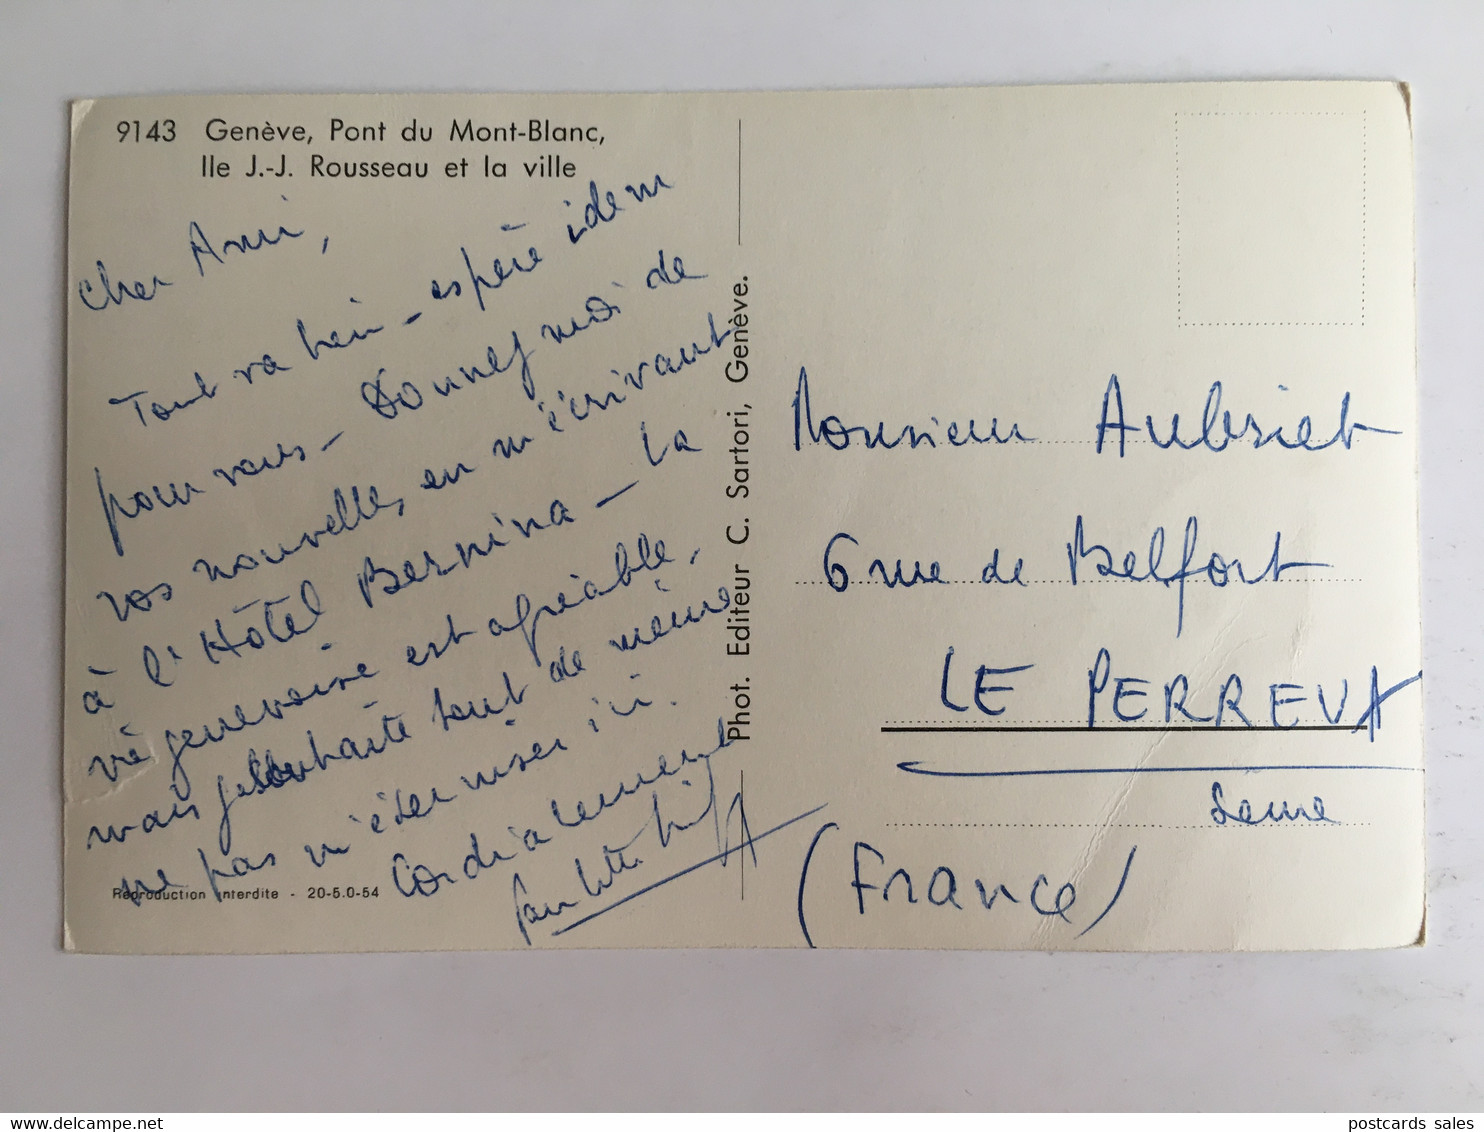 9143 Genève, Pont du Mont-Blanc,
Ile J.-J. Rousseau et la ville
Cher Ami,
Tout va bien - espère idem
pour vous - Donnez moi de
vos nouvelles, en m'écrivant
à l'Hôtel Bernina - La
vie genevoise est agréable,
mais je souhaite tout de même
ne pas m'éterniser ici.
Cordialement
Reproduction interdite - 20-5.0-54
Phot. Editeur C. Sartori, Genève.
Monsieur Aubriet
6 rue de Belfort
LE PERREUX
Seine
(France)
postcards sales